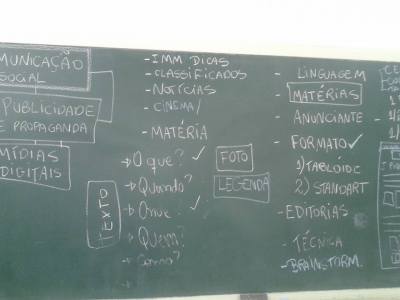 MUNICAÇÃO
SOCIAL
PUBLICIDADE
E PROPAGANDA
MÍDIAS
DIGITAIS
- IMM DICAS
- CLASSIFICADOS
- NOTÍCIAS
- CINEMA/
- MATÉRIA
TEXTO
→ O que? ✓
→ Quando?
→ Onde. ✓
→ Quem?
→ Como?
FOTO
LEGENDA
- LINGUAGEM
- MATÉRIAS
- ANUNCIANTE
- FORMATO ✓
1) TABLÓIDE
2) STANDART
- EDITORIAS
- TÉCNICA
- BRAINSTORM.